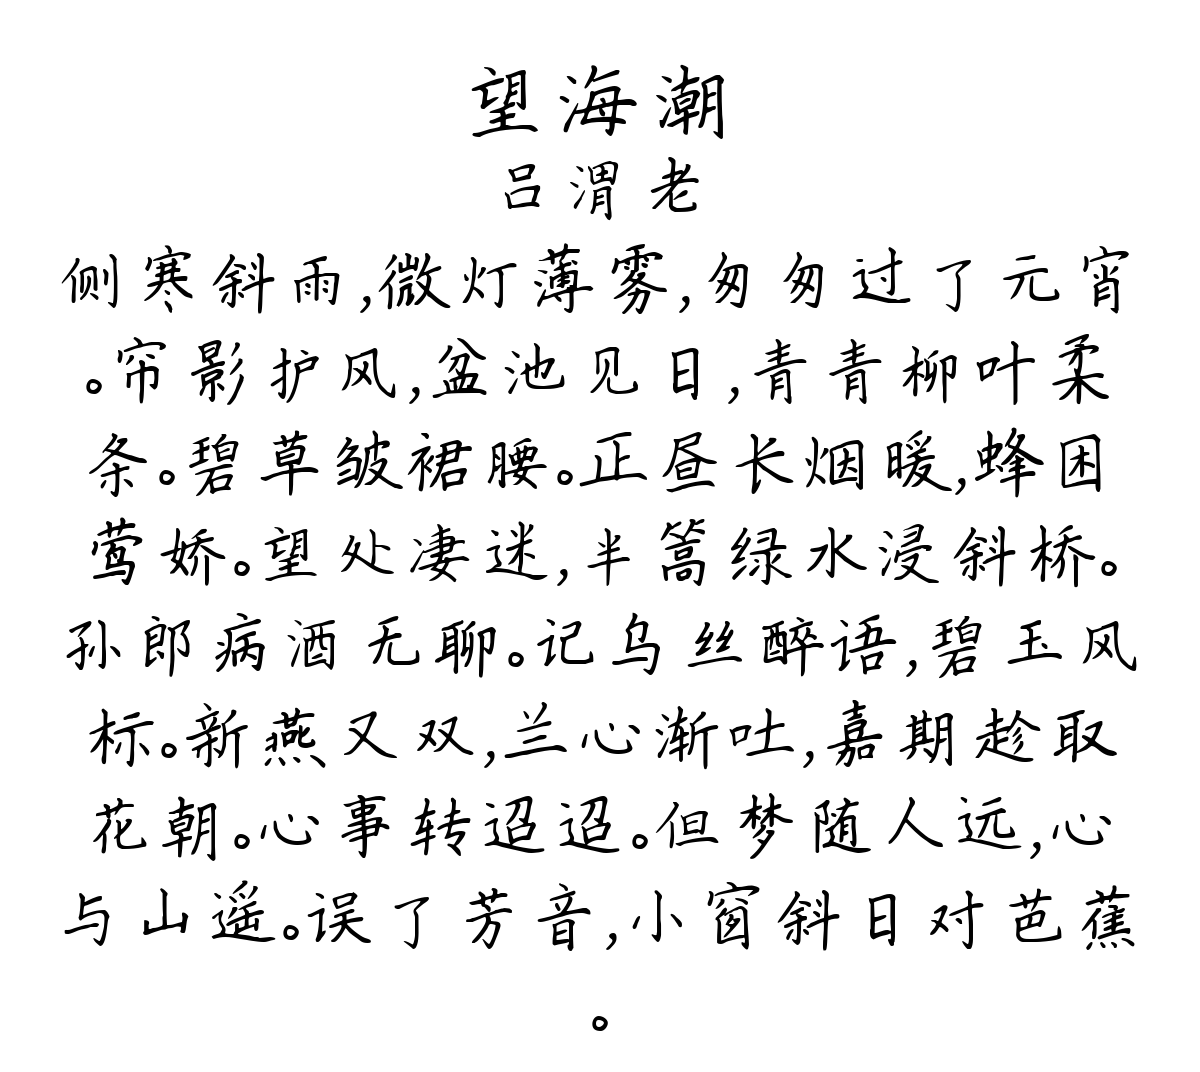 望海潮
吕渭老
侧寒斜雨,微灯薄雾,匆匆过了元宵
。帘影护风,盆池见日,青青柳叶柔
条。碧草皱裙腰。正昼长烟暖,蜂困
莺娇。望处凄迷,半篙绿水浸斜桥。
孙郎病酒无聊。记乌丝醉语,碧玉风
标。新燕又双,兰心渐吐,嘉期趁取
花朝。心事转迢迢。但梦随人远,心
与山遥。误了芳音,小窗斜日对芭蕉
。